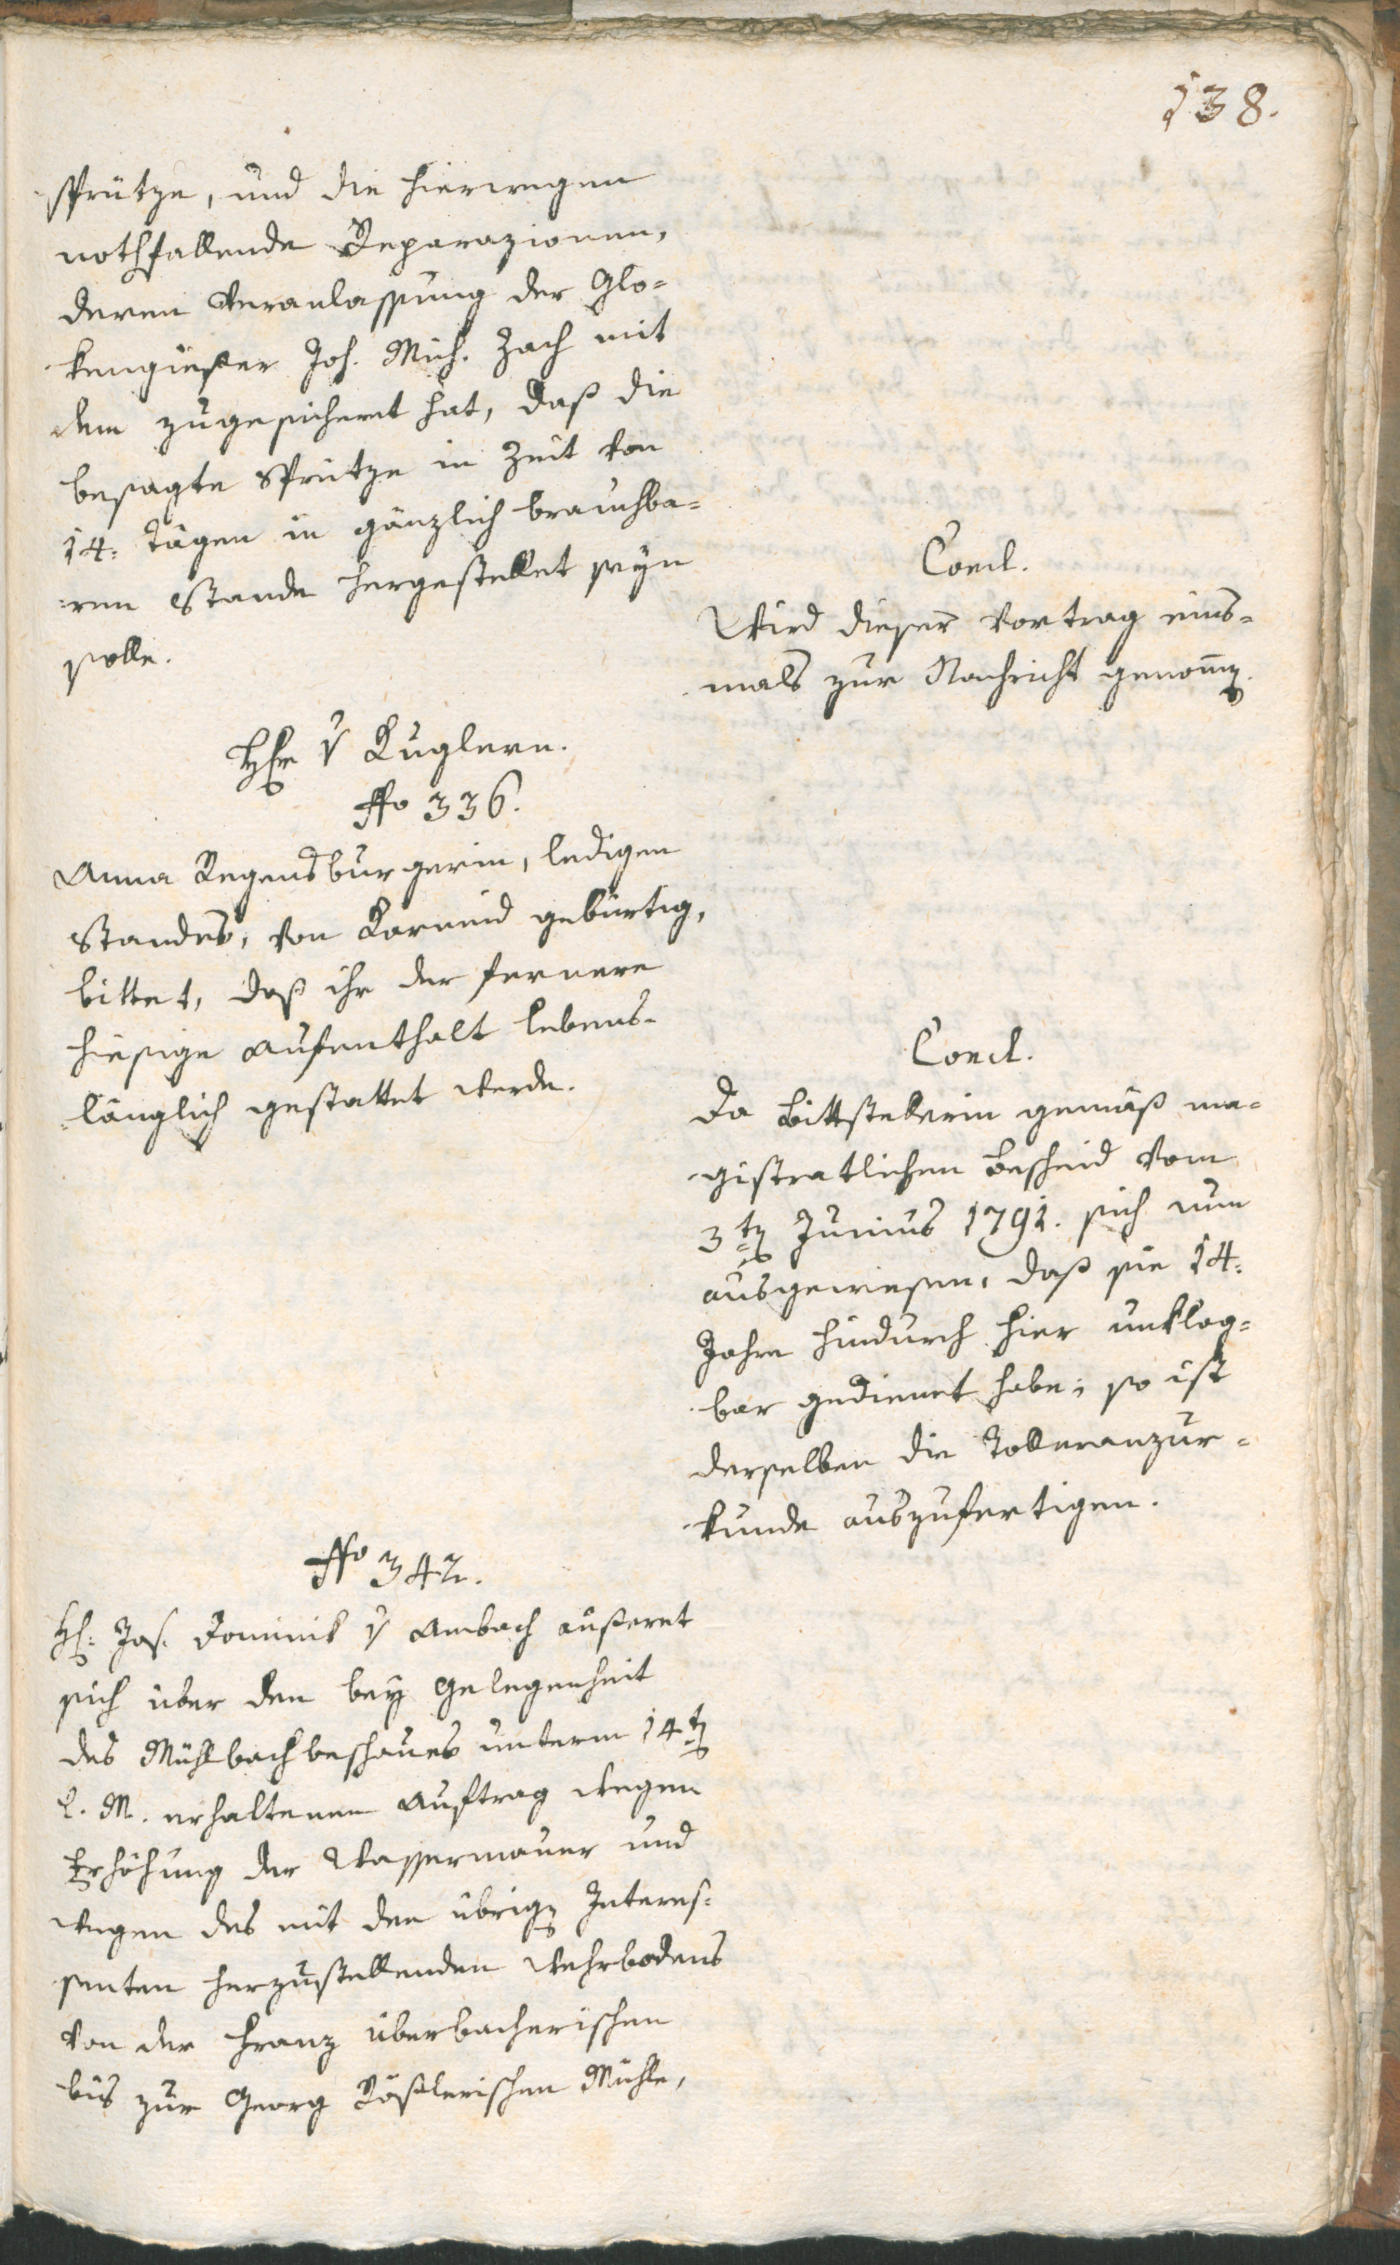 138.
sprütze, und die hierwegen
nothfallende Reparazionen,
deren Veranlassung der Glo=
kengießer Joh. Mich. Zach mit
dem zugesichert hat, daß die
besagte Sprütze in Zeit von
14: Tägen in gänzlich brauchba=
ren Stande hergestellet seyn
solle.
Concl.
Wird dieser Vortrag eins=
mals zur Nachricht genom̄en.
Herr v Kuglern.
Nro 336.
Anna Regensburgerin, ledigen
Standes, von Karneid gebürtig,
bittet, daß ihr der fernere
hiesige Aufenthalt lebens=
länglich gestattet werde.
Concl.
Da Bittstellerin gemäß ma=
gistratlichen Bescheid vom
3ten Junius 1791. sich nun
ausgewiesen, daß sie 14.
Jahre hindurch hier unklag=
bar gedienet habe; so ist
derselben die Tolleranzur=
kunde auszufertigen.
Nro 342.
H: Jos. Dominik v Ambach äußeret
sich über den bey Gelegenheit
des Mühlbachbeschaues unterm 14ten
l. M. erhaltenen Auftrag wegen
Erhöhung der Wassermauer und
wegen des mit den übrigen Interes=
senten herzustellenden Wehrbodens
von der Franz überbacherischen
bis zur Georg Rößlerischen Mühle,